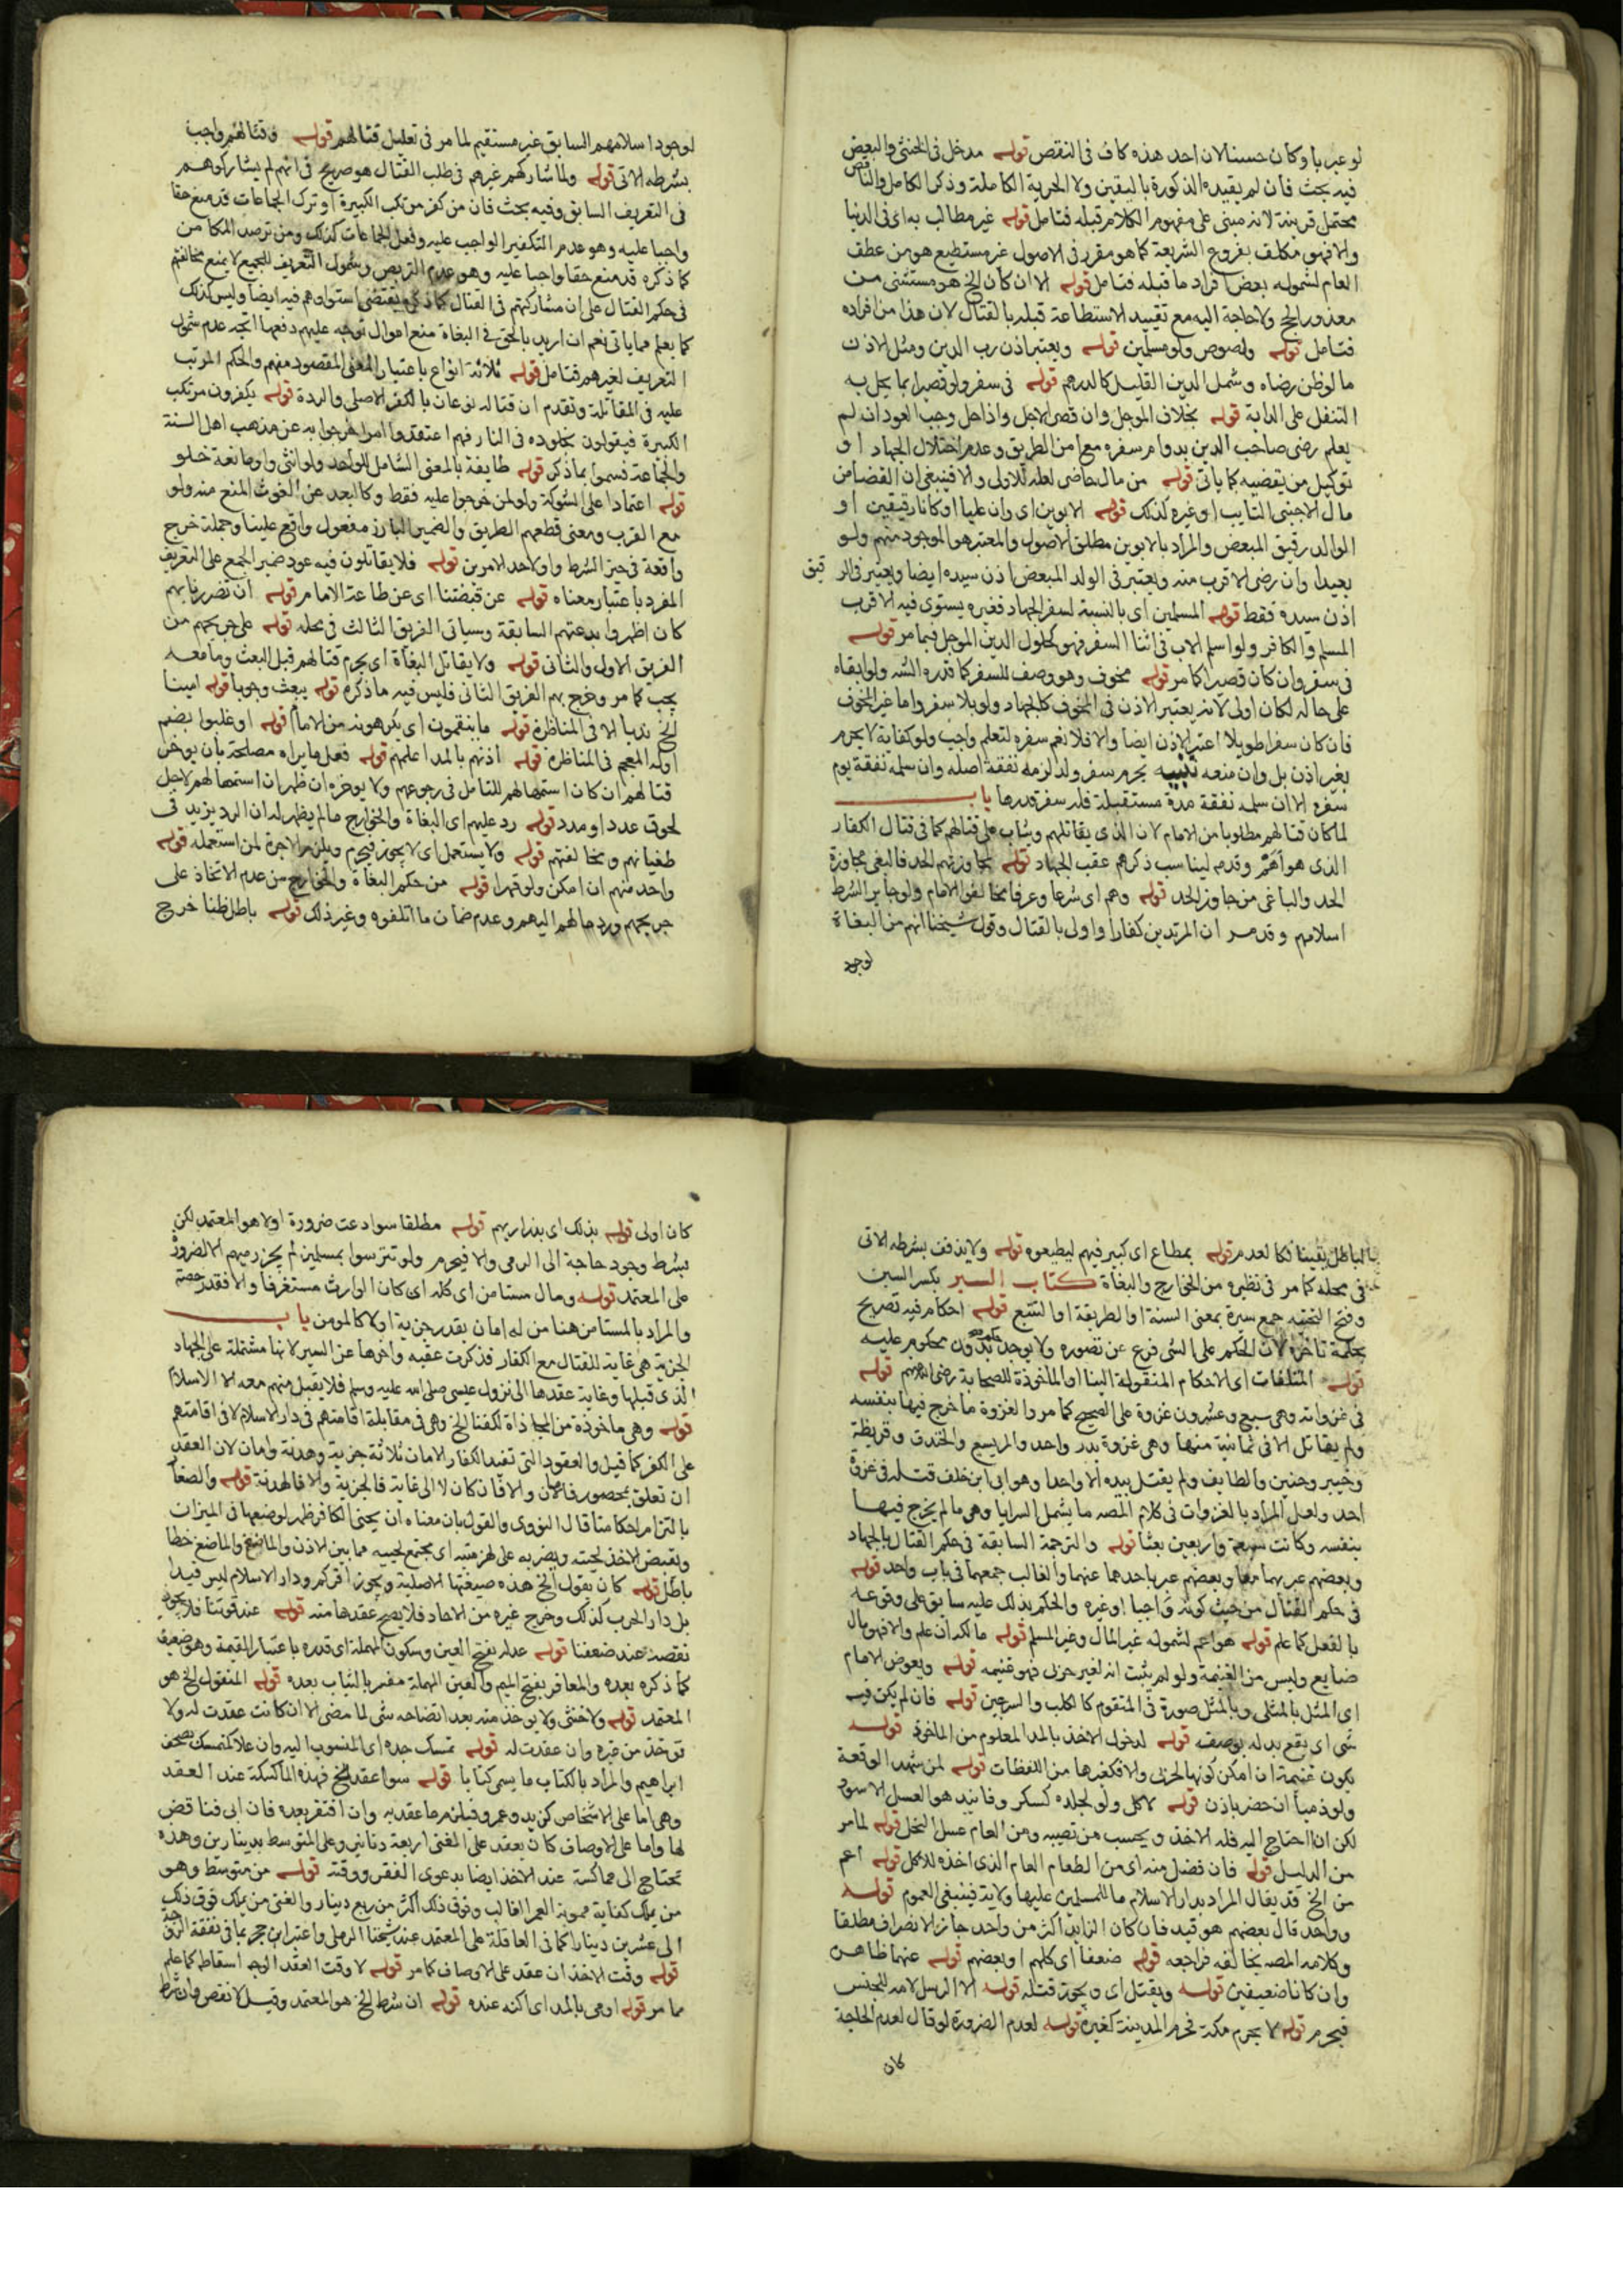 لو عبر باو كان حسنا لان احد هذه كاف في النقص قوله مدخل في الخنثى والبعض
فيه بحث فان لم يقيده الذكورة باليقين ولا الحرية الكاملة وذكر الكامل والناقص
محتمل قرينة لانه مبني على مفهوم الكلام قبله فتامل قوله غير مطالب به اي في الدنيا
والا فهو مكلف بفروع الشريعة كما هو مقرر في الاصول غير مستطيع هو من عطف
العام لشموله بعض افراد ما قبله فتامل قوله الا ان كان الخ هو مستثنى من
معذور الحج ولا حاجة اليه مع تقييد الاستطاعة قبله بالقتال لان هذا من افراده
فتامل قوله ولصوص ولو مسلمين قوله ويعتبر اذن رب الدين ومثل الاذن
ما لو ظن رضاه وشمل الدين القليل كالدرهم قوله في سفر ولو قصيرا بما يحل به
التنفل على الدابة قوله بخلاف الموجل وان قصر الاجل واذا حل وجب العود ان لم
يعلم رضى صاحب الدين بدوام سفره مع امن الطريق وعدم اختلال الجهاد او
توكيل من يقضيه كما ياتي قوله من مال حاضر لعله للاولى والا فينبغي ان القضا من
مال الاجنبي التايب او غيره كذلك قوله الابوين اي وان عليا او كانا رقيقين او
الوالد رقيق المبعض والمراد بالابوين مطلق الاصول والمعتبر هو الموجود منهم ولو
بعيدا وان رضى الاقرب منه ويعتبر في الولد المبعض اذن سيده ايضا ويعتبر في الرقيق
اذن سيده فقط قوله المسلمين اي بالنسبة لسفر الجهاد فغيره يستوي فيه الاقرب
المسلم والكافر ولو اسلم الاب في اثنا السفر فهو كحلول الدين الموجل فيما مر قوله
في سفر وان كان قصيرا كما مر قوله مخوف وهو وصف للسفر كما قدره الشه ولو ابقاه
على حاله لكان اولى لانه يعتبر الاذن في المخوف كالجهاد ولو بلا سفر واما غير المخوف
فان كان سفرا طويلا اعتبر الاذن ايضا والا فلا نعم سفره لتعلم واجب ولو كفاية لا يحرم
بغير اذن بل وان منعه تنبيه يحرم سفر ولد لزمه نفقة اصله وان سلمه نفقة يوم
سفره الا ان سلمه نفقة مدة مستقبلة فله سفر قدرها باب
لما كان قتالهم مطلوبا من الامام لان الذي يقاتلهم ويثاب على قتالهم كما في قتال الكفار
الذي هو اهم وقدم لينا سب ذكرهم عقب الجهاد قوله لمجاوزتهم الحد فالبغي مجاوزة
الحد والباغي من جاوز الحد قوله وهم اي شرعا وعرفا مخالفوا الامام ولو جايرا بشرط
اسلامهم وقد مر ان المرتدين كفارا واولى بالقتال وقول شيخنا انهم من البغاة
لوجود
لوجود اسلامهم السابق غير مستقيم لما مر في تعليل قتالهم قوله وقتالهم واجب
بشرطه الاتي قوله ولما شاركهم غيرهم في طلب القتال هو صريح في انهم لم يشاركوهم
في التعريف السابق وفيه بحث فان من كفر مرتكب الكبيرة او ترك الجماعات قد منع حقا
واجبا عليه وهو عدم التكفير الواجب عليه وفعل الجماعات كذلك ومن ترصد المكامن
كما ذكره قد منع حقا واجبا عليه وهو عدم التربص وشمول التعريف للجميع لا يمنع مخالفتهم
في حكم القتال على ان مشاركتهم في القتال كما ذكره يقتضي استواءهم فيه ايضا وليس كذلك
كما يعلم مما ياتي نعم ان اريد بالحق في البغاة منع اموال توجه عليهم دفعها اتجه عدم شمول
التعريف لغيرهم فتامل قوله ثلاثة انواع باعتبار المعنى المقصود منهم والحكم المرتب
عليه في المقاتلة وتقدم ان قتاله نوعان بالكفر الاصلي والردة قوله يكفرون مرتكب
الكبيرة فيقولون بخلوده في النار فهم اعتقدوا امرا خرجوا به عن مذهب اهل السنة
والجماعة فسموا بما ذكر قوله طايفة بالمعنى الشامل للواحد ولو انثى واو مانعة خلو
قوله اعتمادا على الشوكة ولو لمن خرجوا عليه فقط وكالبعد عن الغوث المنع منه ولو
مع القرب ومعنى قطعهم الطريق والضمير البارز مفعول واقع علينا وجملة خرج
واقعة في حيز الشرط واو لاحد الامرين قوله فلا يقاتلون فيه عود ضمير الجمع على التعريف
المفرد باعتبار معناه قوله عن قبضتنا اي عن طاعة الامام قوله ان تضررنا بهم
كان اظهروا بدعتهم السابقة وسياتي الفريق الثالث في محله قوله على جريحهم من
الفريق الاول والثاني قوله ولا يقاتل البغاة اي يحرم قتالهم قبل البعث وما معه
يجب كما مر وخرج بهم الفريق الثاني فليس فيه ما ذكره قوله يبعث وجوبا قوله امينا
الخ ندبا الا في المناظرة قوله ما ينقمون اي يكرهونه من الامام قوله او غلبوا بضم
اوله المعجم في المناظرة قوله اذنهم بالمد اعلمهم قوله فعل ما يراه مصلحة بان يوخر
قتالهم ان كان استمهالهم للتامل في رجوعهم ولا يوخره ان ظهر ان استمهالهم لاجل
لحوق عدد او مدد قوله رد عليهم اي البغاة والخوارج ما لم يظهر له ان الرد يزيد في
طغيانهم ومخالفتهم قوله ولا يستعمل اي لا يجوز فيحرم ويلزم الاجرة لمن استعمله قوله
واحد منهم ان امكن ولو قهرا قوله من حكم البغاة والخوارج من عدم الاتخاذ على
جريحهم ورد مالهم اليهم وعدم ضمان ما اتلفوه وغير ذلك قوله باطل ظنا خرج
الباطل يقينا فكالعدم قوله بمطاع اي كبير فيهم ليطيعوه قوله ولا يذفف بشرطه الاتي
في محله كما مر في نظيره من الخوارج والبغاة كتاب السير بكسر السين
وفتح التحتيه جمع سيرة بمعنى السنة او الطريقة او التتبع قوله احكام فيه تصريح
بحكمة تاخره لان الحكم على الشي فرع عن تصوره ولا يوجد حكم بدون محكوم عليه
قوله المتلقات اي الاحكام المنقولة الينا او الماخوذة للصحابة رضي الله عنهم قوله
في غزواته وهي سبع وعشرون غزوة على الصحيح كما مر والغزوة ما خرج فيها بنفسه
ولم يقاتل الا في ثمانية منها وهي غزوة بدر واحد والمريسيع والخندق وقريظة
وخيبر وحنين والطايف ولم يقتل بيده الا واحدا وهو ابي ابن خلف قتله في غزوة
احد ولعل المراد بالغزوات في كلام المصه ما يشمل السرايا وهي ما لم يخرج فيها
بنفسه وكانت سبعة واربعين بعثا قوله والترجمة السابقة في حكم القتال بالجهاد
وبعضهم عبر بهما معا وبعضهم عبر باحدهما عنهما والغالب جمعهما في باب واحد قوله
في حكم القتال من حيث كونه واجبا او غيره والحكم بذلك عليه سابق على وقوعه
بالفعل كما علم قوله هو اعم لشموله غير المال وغير المسلم قوله مالكه ان علم والا فهو مال
ضايع وليس من الغنيمة ولو لم يثبت انه لغير حربي فهو غنيمه قوله ويعوض الامام
اي المثل بالمثلى وبالمثل صورة في المتقوم كالكلب والسرجين قوله فان لم يكن فيه
شي اي يقع بدله بوصفه قوله لدخول الاخذ بالمد المعلوم من الماخوذ قوله
يكون غنيمة ان امكن كونها لحربي والا فكغيرها من اللقطات قوله لمن شهد الوقعة
ولو ذميا ان حضر باذن قوله لاكل ولو لجلده كسكر وفانيد هو العسل الاسود
لكن ان احتاج اليه فله الاخذ ويحسب من نصيبه ومن العام عسل النحل قوله لما مر
من الدليل قوله فان فضل منه اي من الطعام العام الذي اخذه للاكل قوله اعم
من الخ قد يقال المراد بدار الاسلام ما للمسلمين عليها ولاية فينبغي العموم قوله
وواحد قال بعضهم هو قيد فان كان الزايد اكثر من واحد جاز الانصراف مطلقا
وكلام المصه يخالفه فراجعه قوله ضعفا اي كلهم او بعضهم قوله عنهما ظاهره
وان كانا ضعيفين قوله ويقتل اي ويجوز قتله قوله الا الرسل لامه للجنس
فيحرم قوله لا بحرم مكة فحرم المدينة كغيره قوله لعدم الضرورة لو قال لعدم الحاجة
كان
كان اولى قوله بذلك اي بذراريهم قوله مطلقا سوا دعت ضرورة اولا هو المعتمد لكن
بشرط وجود حاجة الى الرمي والا فيحرم ولو تترسوا بمسلمين لم يجز رميهم الا لضرورة
على المعتمد قوله ومال مستامن اي كله اي كان الوارث مستغرقا والا فقدر حصته
والمراد بالمستامن هنا من له امان يقدر جزية اولا كالمومن باب
الجزية هي غاية للقتال مع الكفار فذكرت عقبه واخرها عن السير لانها مشتملة على الجهاد
الذي قبلها وغاية عقدها الى نزول عيسى صلى الله عليه وسلم فلا يقبل منهم معه الا الاسلام
قوله وهي ماخوذة من المجازاة لكفنا الخ وهي في مقابلة اقامتهم في دار الاسلام لا في اقامتهم
على الكفر كما قيل والعقود التي تفيد الكفار الامان ثلاثة جزية وهدنة وامان لان العقد
ان تعلق بمحصور فامان والا فان كان لا الى غاية فالجزية والا فالهدنة قوله والصغار
بالتزام احكامنا قال النووي والقول بان معناه ان يحنى الكافر ظهره لوضعها في الميزان
ويقبض الاخذ لحيته ويضربه على لهزمتيه اي مجتمع لحييه مما بين الاذن والماضغ والماضغ خطا
باطل قوله كان يقول الخ هذه صيغتها الاصلية ويجوز اقركم ودار الاسلام ليس قيدا
بل دار الحرب كذلك وخرج غيره من الاحاد فلا يصح عقدها منه قوله عند قوتنا فلا يجوز
نقصه عند ضعفنا قوله عدله بفتح العين وسكون المهملة اي قدره باعتبار القيمة وهو ضعيف
كما ذكره بعده والمعافر بفتح الميم والعين المهملة مفسر بالثياب بعده قوله المنقول الخ هو
المعتمد قوله ولا خنثى ولا يوخذ منه بعد اتضاحه شي لما مضى الا ان كانت عقدت له ولا
توخذ من غيره وان عقدت له قوله تمسك جده اي المنسوب اليه وان علا كمتمسك بصحف
ابراهيم والمراد بالكتاب ما يسمى كتابا قوله سوا عقد الخ فهذه المماكسة عند العقد
وهي اما على الاشخاص كزيد وعمرو فيلزم ما عقد به وان افتقر بعده فان ابى فناقض
لها واما على الاوصاف كان يعقد على الغني اربعة دنانير وعلى المتوسط بدينارين وهذه
تحتاج الى مماكسة عند الاخذ ايضا بدعوى الفقر ووقته قوله من متوسط وهو
من يملك كفاية ممونه العمر الغالب وفوق ذلك اكثر من ربع دينار والغني من يملك فوق ذلك
الى عشرين دينارا كما في العاقلة على المعتمد عند شيخنا الرملي واعتبر ابن حجر بما في نفقة الزوجة
قوله وقت الاخذ ان عقد على الاوصاف كما مر قوله لا وقت العقد الوجه اسقاطه كما علم
مما مر قوله اومى بالمد اي اكنه عنده قوله ان شرط الخ هو المعتمد وقيل لا نقص وان شرط